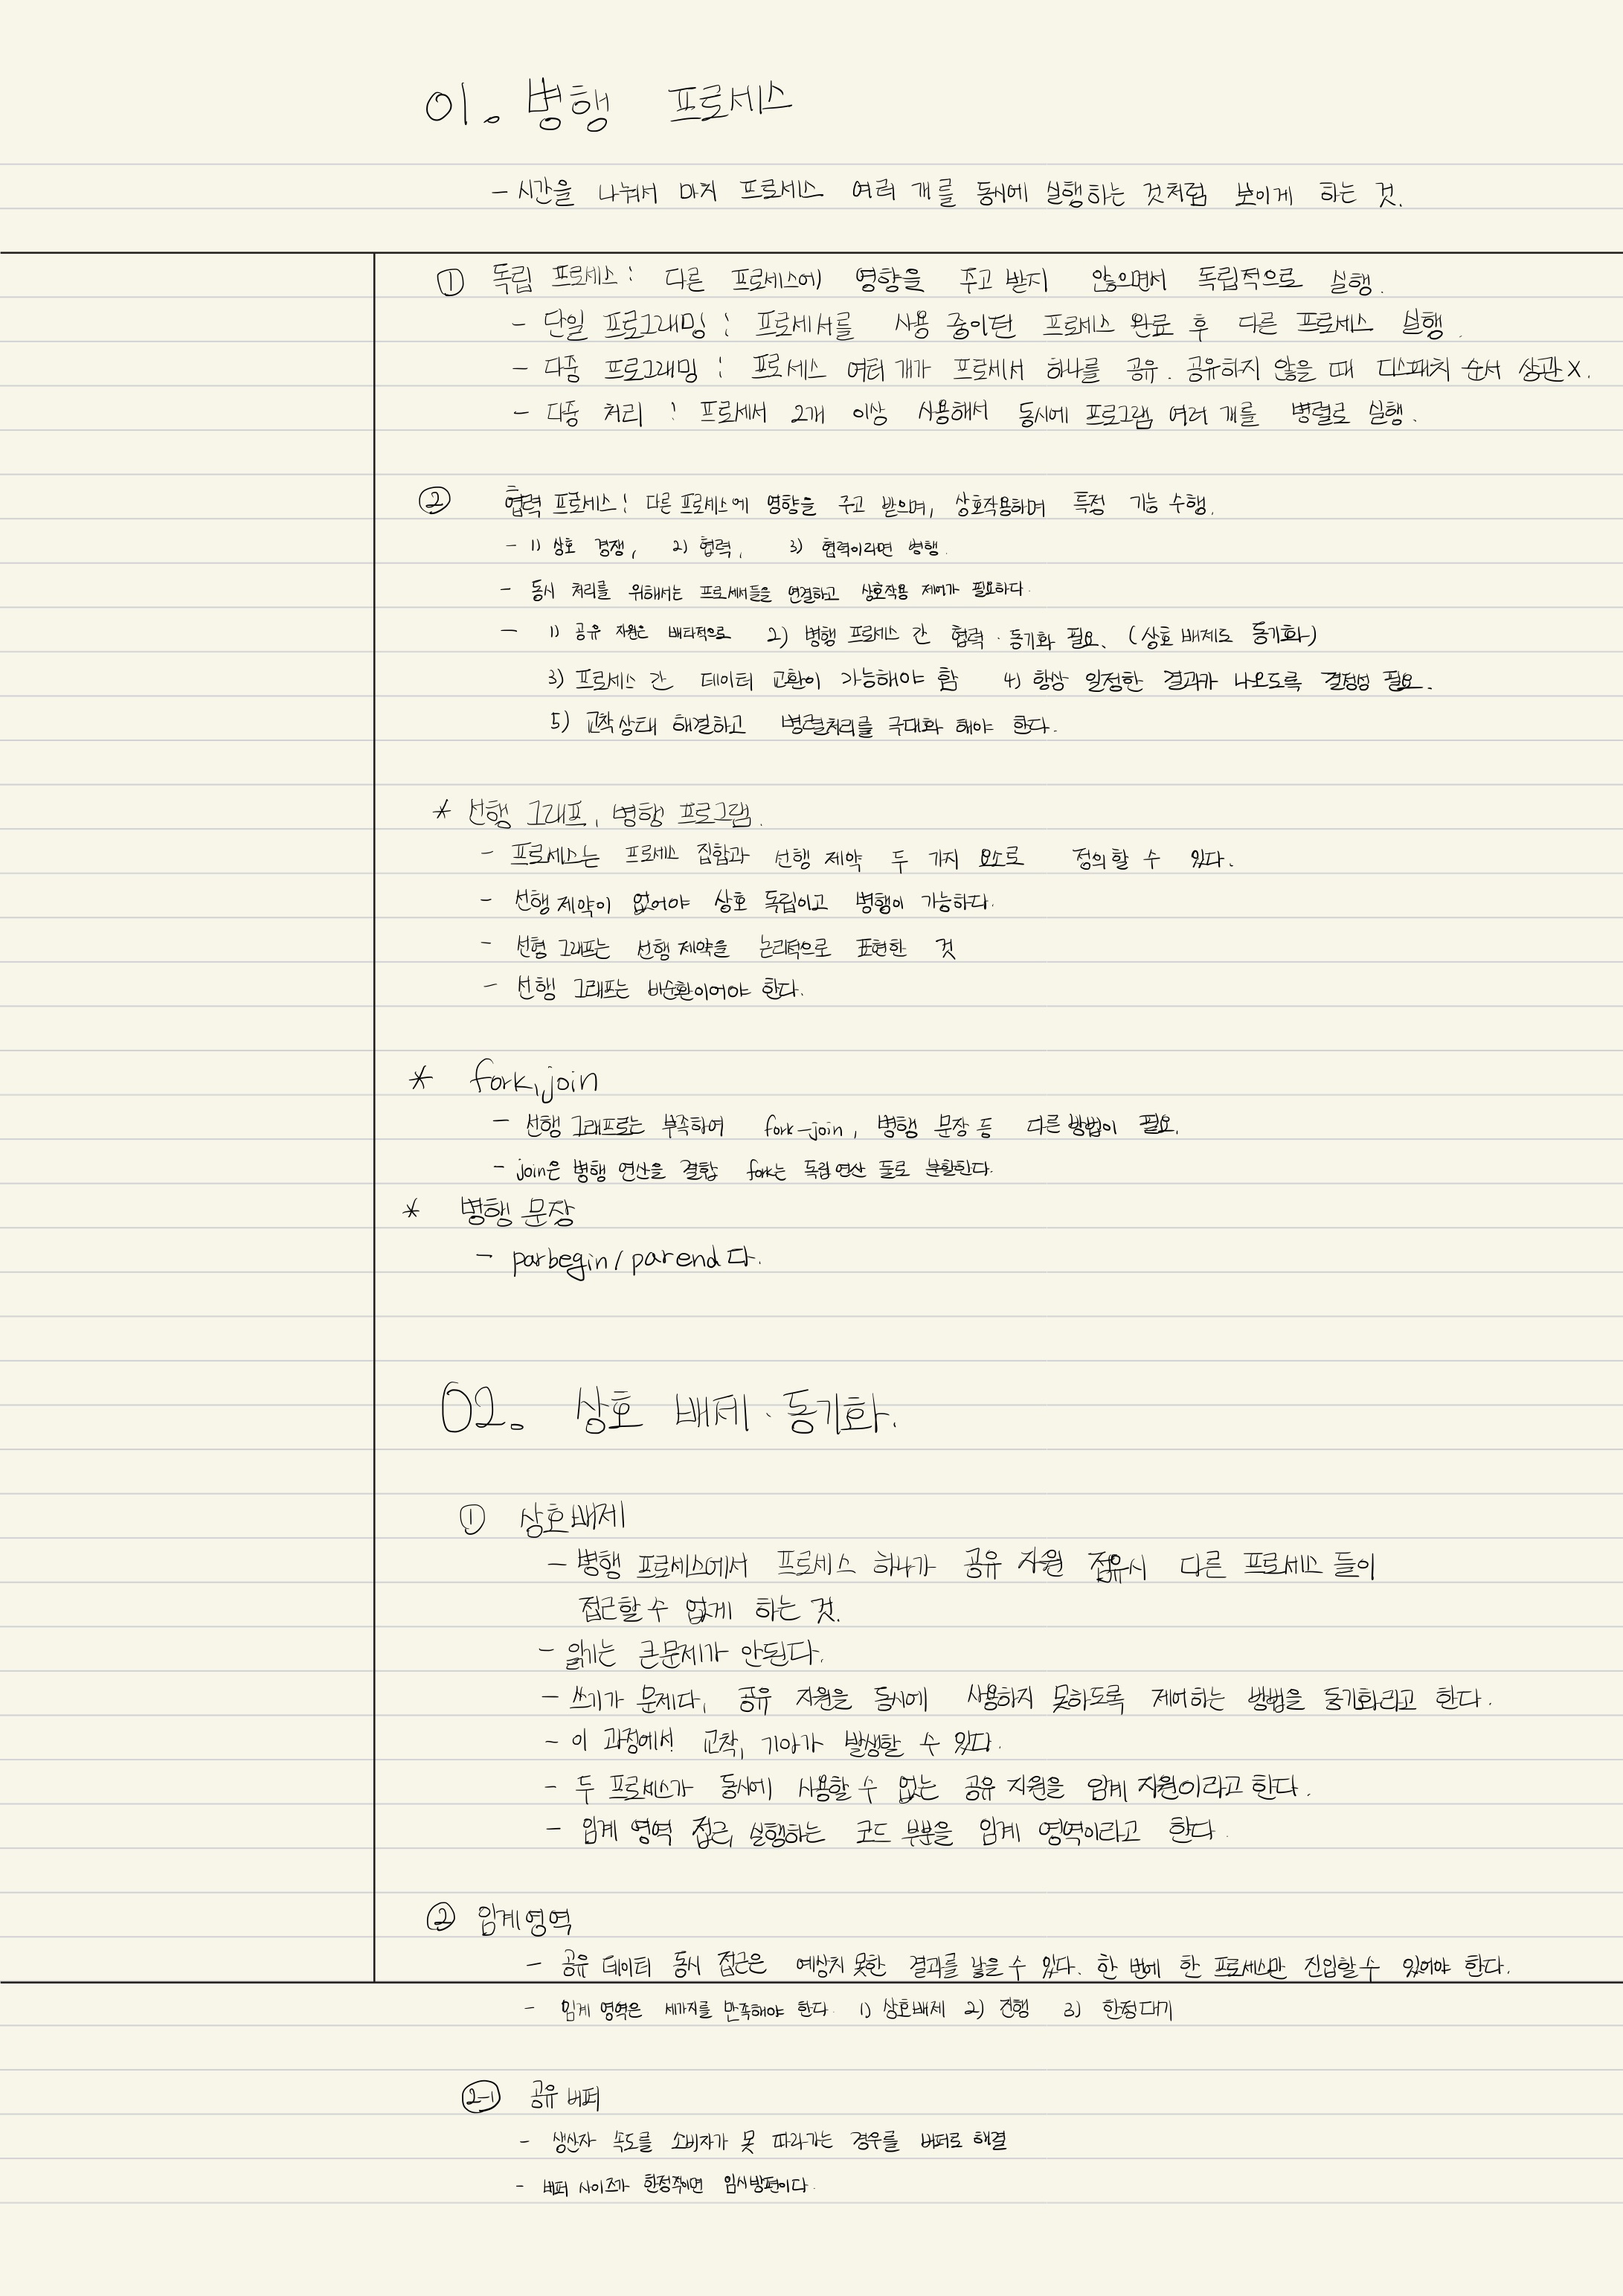 01. 병행 프로세스
- 시간을 나눠서 마치 프로세스 여러 개를 동시에 실행하는 것처럼 보이게 하는 것.
① 독립 프로세스 : 다른 프로세스에 영향을 주고 받지 않으면서 독립적으로 실행.
- 단일 프로그래밍 : 프로세서를 사용 중이던 프로세스 완료 후 다른 프로세스 실행.
- 다중 프로그래밍 : 프로세스 여러 개가 프로세서 하나를 공유. 공유하지 않을 때 디스패치 순서 상관 X.
- 다중 처리 : 프로세서 2개 이상 사용해서 동시에 프로그램 여러 개를 병렬로 실행.
② 협력 프로세스 : 다른 프로세스에 영향을 주고 받으며, 상호작용하며 특정 기능 수행.
- 1) 상호 경쟁, 2) 협력, 3) 협력이라면 병행.
- 동시 처리를 위해서는 프로세서들을 연결하고 상호작용 제어가 필요하다.
- 1) 공유 자원은 배타적으로 2) 병행 프로세스 간 협력·동기화 필요. (상호 배제도 동기화)
3) 프로세스 간 데이터 교환이 가능해야 함 4) 항상 일정한 결과가 나오도록 결정성 필요.
5) 교착상태 해결하고 병렬처리를 극대화 해야 한다.
* 선행 그래프, 병행 프로그램.
- 프로세스는 프로세스 집합과 선행 제약 두 가지 요소로 정의할 수 있다.
- 선행 제약이 없어야 상호 독립이고 병행이 가능하다.
- 선형 그래프는 선행 제약을 논리적으로 표현한 것
- 선행 그래프는 비순환이어야 한다.
* fork, join
- 선행 그래프로는 부족하여 fork-join, 병행 문장 등 다른 방법이 필요.
- join은 병행 연산을 결합 fork는 독립 연산 둘로 분할한다.
* 병행 문장
- parbegin/parend다.
02. 상호 배제·동기화.
① 상호배제
- 병행 프로세스에서 프로세스 하나가 공유 자원 점유시 다른 프로세스 들이
접근할 수 없게 하는 것.
- 읽기는 큰문제가 안된다.
- 쓰기가 문제다, 공유 자원을 동시에 사용하지 못하도록 제어하는 방법을 동기화라고 한다.
- 이 과정에서 교착, 기아가 발생할 수 있다.
- 두 프로세스가 동시에 사용할 수 없는 공유 자원을 임계 자원이라고 한다.
- 임계 영역 접근, 실행하는 코드 부분을 임계 영역이라고 한다.
② 임계영역
- 공유 데이터 동시 접근은 예상치 못한 결과를 낳을 수 있다. 한 번에 한 프로세스만 진입할 수 있어야 한다.
- 임계 영역은 세가지를 만족해야 한다. 1) 상호배제 2) 진행 3) 한정대기
2-1 공유 버퍼
- 생산자 속도를 소비자가 못 따라가는 경우를 버퍼로 해결
- 버퍼 사이즈가 한정적이면 임시방편이다.